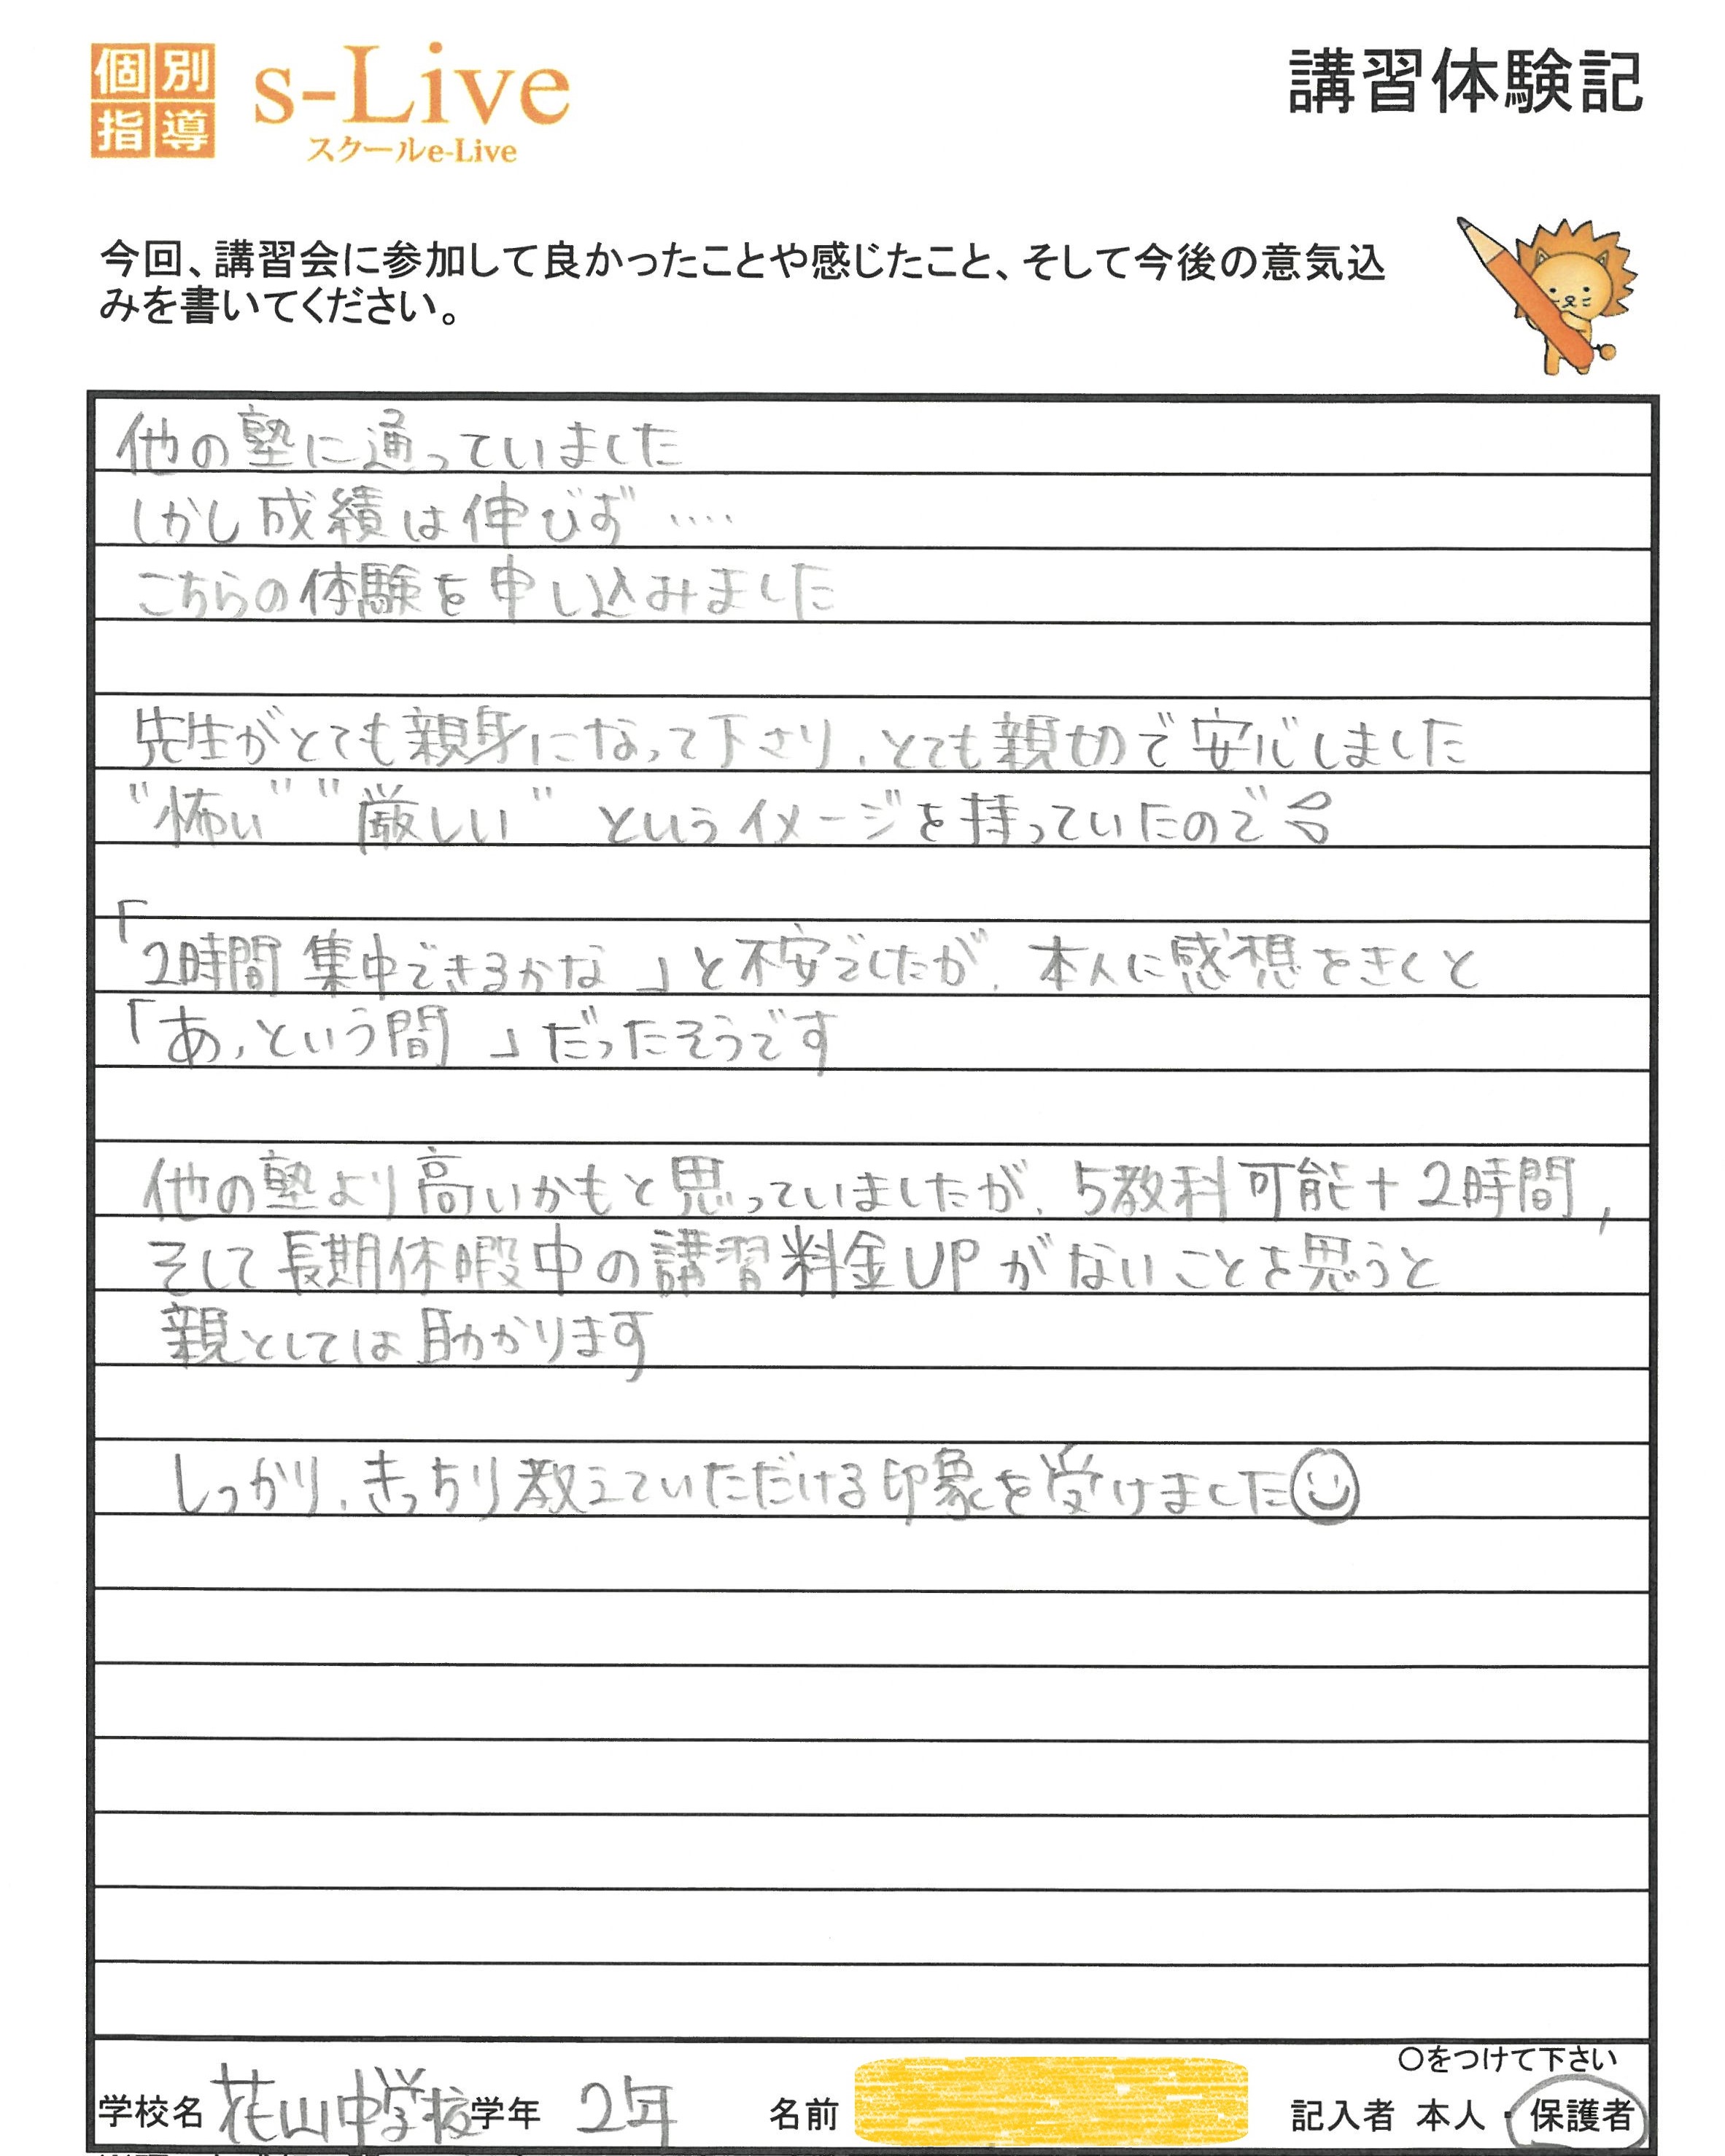 個別指導
s-Live
スクールe-Live
講習体験記
今回、講習会に参加して良かったことや感じたこと、そして今後の意気込
みを書いてください。
他の塾に通っていました
しかし成績は伸びず ‥‥
こちらの体験を申し込みました
先生がとても親身になって下さり、とても親切で安心しました
"怖い" "厳しい" というイメージを持っていたので
「2時間 集中できるかな」と不安でしたが、本人に感想をきくと
「あっという間」だったそうです
他の塾より高いかもと思っていましたが、5教科可能+2時間,
そして長期休暇中の講習料金UPがないことを思うと
親としては助かります
しっかり、きっちり教えていただける印象を受けました
〇をつけて下さい
学校名 花山中学校 学年 2年 名前 記入者 本人・保護者